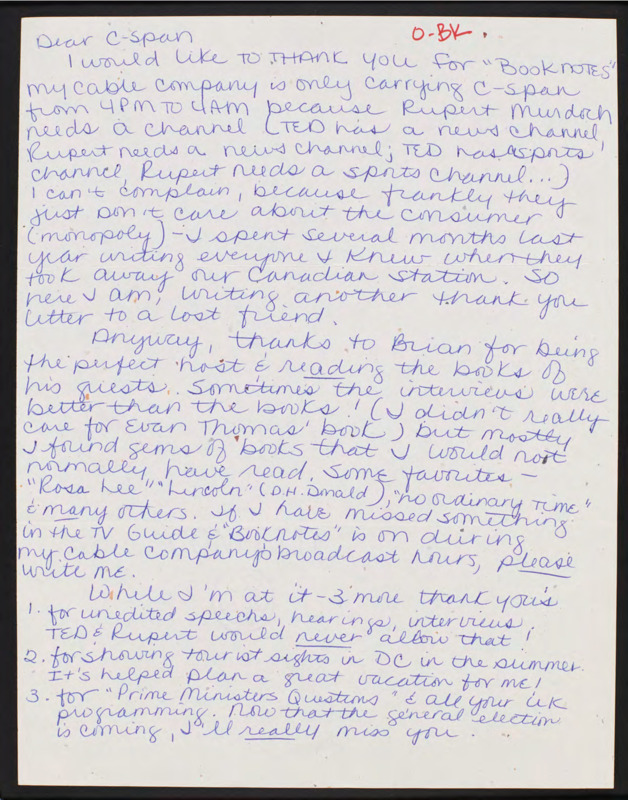 O-BK.
Dear C-span
I would like TO THANK you for "BOOKNOTES"
my cable company is only carrying C-span
from 4PM TO 4AM because Rupert Murdoch
needs a channel (TED has a news channel
Rupert needs a news channel; TED has a sports
channel, Rupert needs a sports channel...)
I can't complain, because frankly they
just don't care about the consumer
(monopoly) - I spent several months last
year writing everyone I knew when they
took away our Canadian station. SO
here I am, writing another thank you
letter to a lost friend.
Anyway, thanks to Brian for being
the perfect host & reading the books of
his guests. Sometimes the interviews were
better than the books! (I didn't really
care for Evan Thomas' book) but mostly
I found gems of books that I would not
normally have read. Some favorites -
"Rosa Lee" "Lincoln" (D.H. Donald), "no ordinary TIME"
& many others. If I have missed something
in the TV Guide & "Booknotes" is on during
my cable company's broadcast hours, please
write me.
While I'm at it - 3 more thank you's
1. for unedited speechs, hearings, interviews.
TED & Rupert would never allow that!
2. for showing tourist sights in DC in the summer.
It's helped plan a great vacation for me!
3. for "Prime Ministers Questions" & all your UK
programming. Now that the general election
is coming, I'll really miss you.